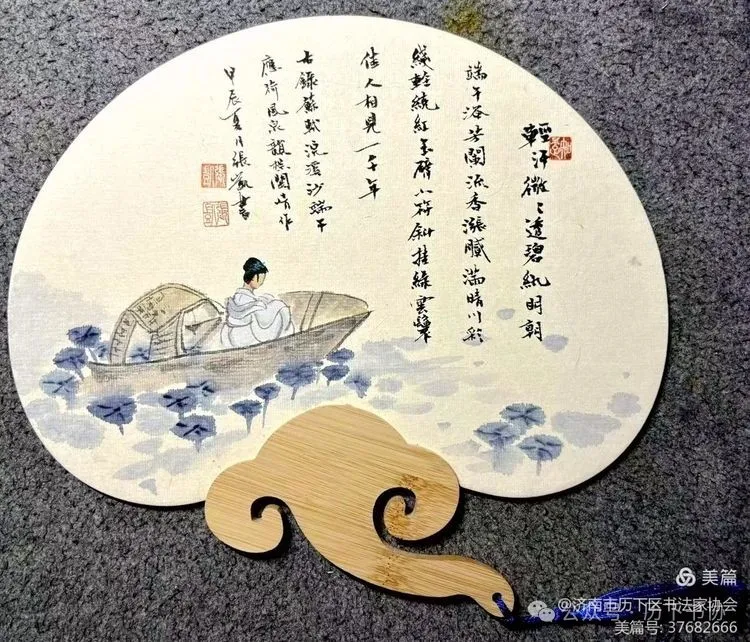 輕汗微々透碧紈明朝
端午浴芳蘭流香漲膩滿晴川彩
綫輕繞紅玉臂小符斜挂綠雲鬟
佳人相見一千年
右錄蘇軾浣溪沙端午
應荷風泉韻
甲辰夏月張書
美篇
@济南市历下区书法家协会
公众号
美篇号: 37682666